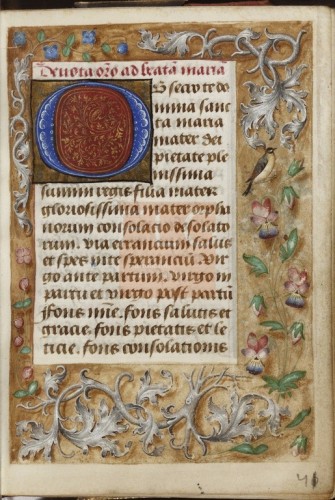 Deuota oro̅ ad beata̅ maria
OBsecro te do
mina sanc
ta maria
mater dei
pietate ple
nissima
summi regis filia mater
gloriosissima mater orpha
norum consolacio desolato
rum. via errancium salus
et spes i̅ te sperancium. Vir
go ante partum. virgo in
partu et virgo post partu̅
ffons mi̅e. fons salutis et
gracie. fons pietatis et le
ticie. fons consolationis